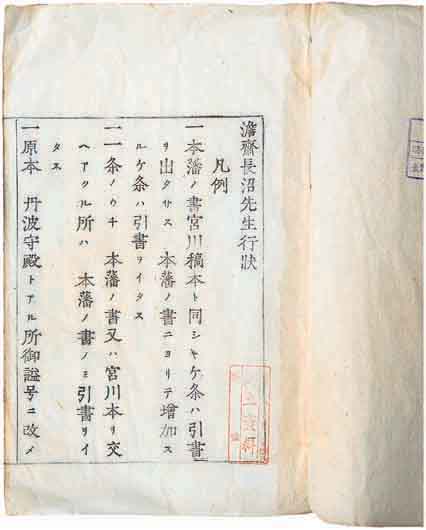 澹齋長沼先生行狀
凡例
一本藩ノ書宮川稿本ト同シキケ条ハ引書
ヲ出タサス 本藩ノ書ニヨリテ增加ス
ルケ条ハ引書ヲイタス
一一条ノウチ 本藩ノ書又ハ宮川本リ交
ヘアクル所ハ 本藩ノ書ノミ引書ヲイ
タス
一原本 丹波守殿トアル所御謚号ニ改メ